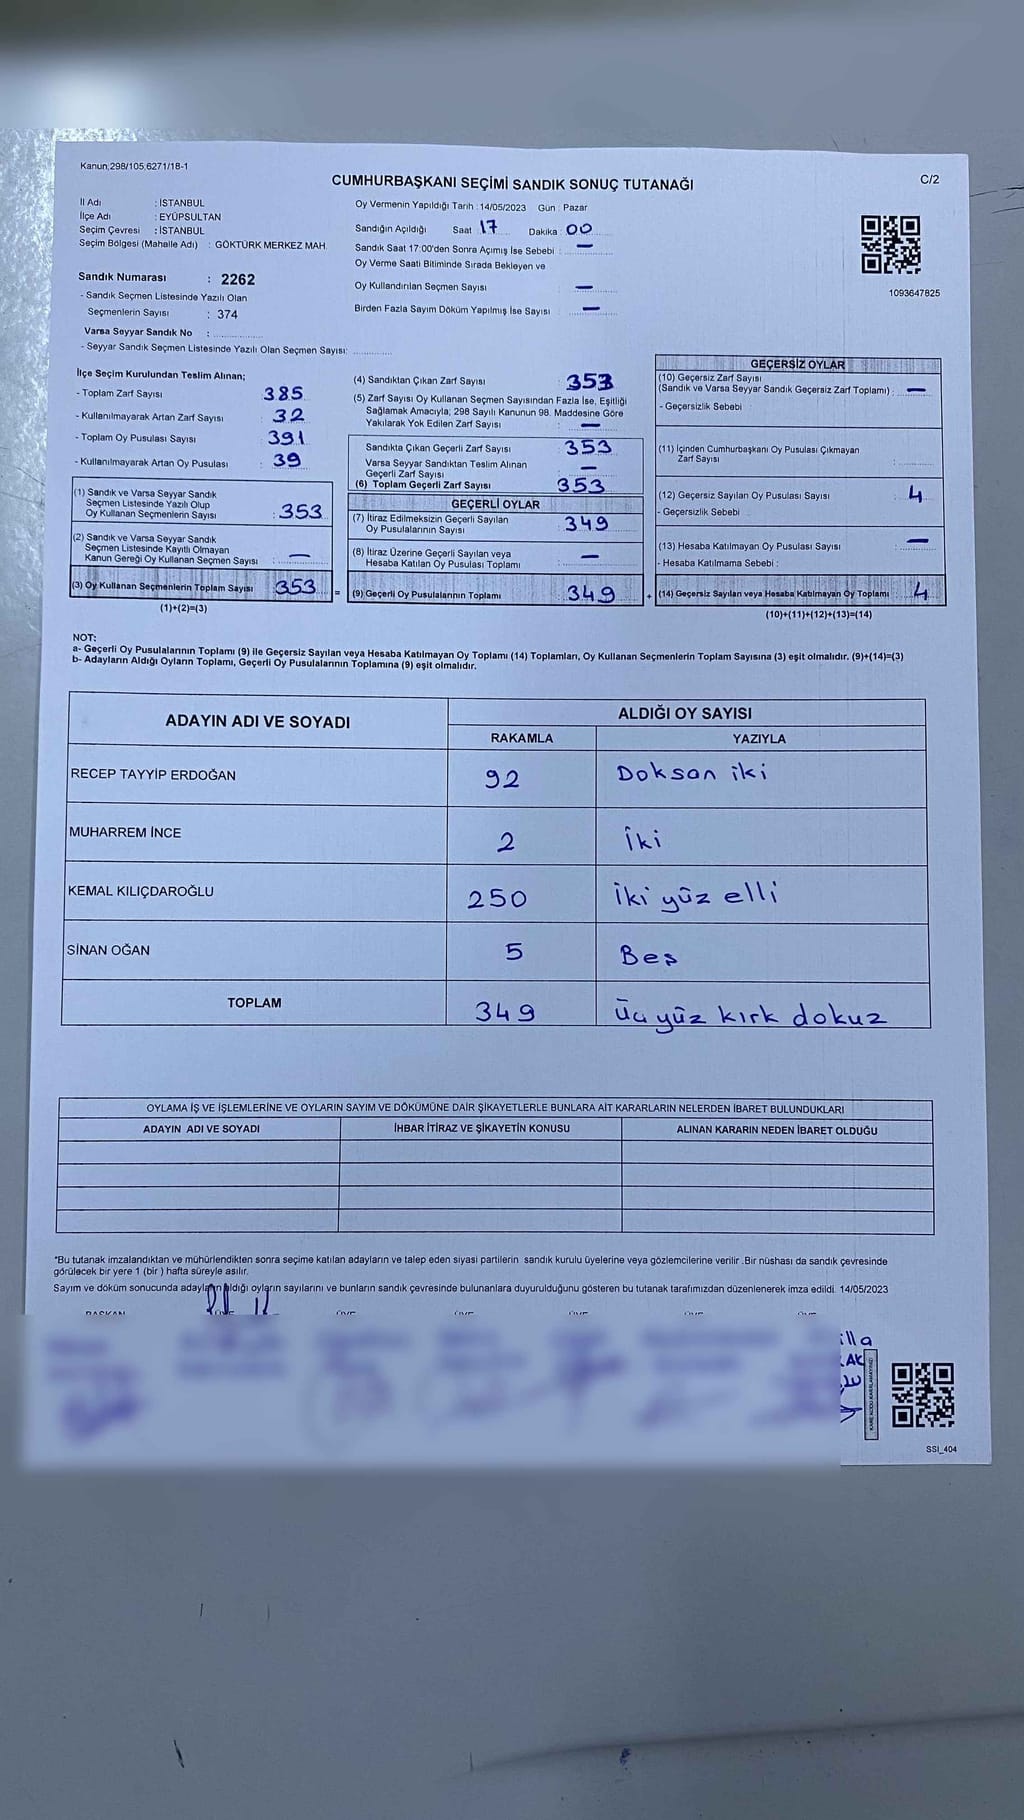 Kanun;298/105;6271/18-1
C/2
CUMHURBAŞKANI SEÇİMİ SANDIK SONUÇ TUTANAĞI
İl Adı : İSTANBUL
İlçe Adı : EYÜPSULTAN
Seçim Çevresi : İSTANBUL
Seçim Bölgesi (Mahalle Adı) : GÖKTÜRK MERKEZ MAH.
Sandık Numarası : 2262
- Sandık Seçmen Listesinde Yazılı Olan
Seçmenlerin Sayısı : 374
Varsa Seyyar Sandık No :
- Seyyar Sandık Seçmen Listesinde Yazılı Olan Seçmen Sayısı:
Oy Vermenin Yapıldığı Tarih : 14/05/2023 Gün : Pazar
Sandığın Açıldığı Saat 17 Dakika 00
Sandık Saat 17:00'den Sonra Açımış İse Sebebi : —
Oy Verme Saati Bitiminde Sırada Bekleyen ve
Oy Kullandırılan Seçmen Sayısı —
Birden Fazla Sayım Döküm Yapılmış İse Sayısı —
1093647825
İlçe Seçim Kurulundan Teslim Alınan;
- Toplam Zarf Sayısı : 385
- Kullanılmayarak Artan Zarf Sayısı : 32
- Toplam Oy Pusulası Sayısı : 391
- Kullanılmayarak Artan Oy Pusulası : 39
(1) Sandık ve Varsa Seyyar Sandık
Seçmen Listesinde Yazılı Olup
Oy Kullanan Seçmenlerin Sayısı : 353
(2) Sandık ve Varsa Seyyar Sandık
Seçmen Listesinde Kayıtlı Olmayan
Kanun Gereği Oy Kullanan Seçmen Sayısı : —
(3) Oy Kullanan Seçmenlerin Toplam Sayısı 353 =
(1)+(2)=(3)
(4) Sandıktan Çıkan Zarf Sayısı : 353
(5) Zarf Sayısı Oy Kullanan Seçmen Sayısından Fazla İse, Eşitliği
Sağlamak Amacıyla; 298 Sayılı Kanunun 98. Maddesine Göre
Yakılarak Yok Edilen Zarf Sayısı : —
Sandıkta Çıkan Geçerli Zarf Sayısı : 353
Varsa Seyyar Sandıktan Teslim Alınan
Geçerli Zarf Sayısı : —
(6) Toplam Geçerli Zarf Sayısı : 353
GEÇERLİ OYLAR
(7) İtiraz Edilmeksizin Geçerli Sayılan
Oy Pusulalarının Sayısı : 349
(8) İtiraz Üzerine Geçerli Sayılan veya
Hesaba Katılan Oy Pusulası Toplamı : —
(9) Geçerli Oy Pusulalarının Toplamı : 349 +
GEÇERSİZ OYLAR
(10) Geçersiz Zarf Sayısı
(Sandık ve Varsa Seyyar Sandık Geçersiz Zarf Toplamı) : —
- Geçersizlik Sebebi :
(11) İçinden Cumhurbaşkanı Oy Pusulası Çıkmayan
Zarf Sayısı :
(12) Geçersiz Sayılan Oy Pusulası Sayısı : 4
- Geçersizlik Sebebi :
(13) Hesaba Katılmayan Oy Pusulası Sayısı : —
- Hesaba Katılmama Sebebi :
(14) Geçersiz Sayılan veya Hesaba Katılmayan Oy Toplamı : 4
(10)+(11)+(12)+(13)=(14)
NOT:
a- Geçerli Oy Pusulalarının Toplamı (9) ile Geçersiz Sayılan veya Hesaba Katılmayan Oy Toplamı (14) Toplamları, Oy Kullanan Seçmenlerin Toplam Sayısına (3) eşit olmalıdır. (9)+(14)=(3)
b- Adayların Aldığı Oyların Toplamı, Geçerli Oy Pusulalarının Toplamına (9) eşit olmalıdır.
ADAYIN ADI VE SOYADI ALDIĞI OY SAYISI
RAKAMLA YAZIYLA
RECEP TAYYİP ERDOĞAN 92 Doksan iki
MUHARREM İNCE 2 İki
KEMAL KILIÇDAROĞLU 250 İki yüz elli
SİNAN OĞAN 5 Beş
TOPLAM 349 Üç yüz kırk dokuz
OYLAMA İŞ VE İŞLEMLERİNE VE OYLARIN SAYIM VE DÖKÜMÜNE DAİR ŞİKAYETLERLE BUNLARA AİT KARARLARIN NELERDEN İBARET BULUNDUKLARI
ADAYIN ADI VE SOYADI İHBAR İTİRAZ VE ŞİKAYETİN KONUSU ALINAN KARARIN NEDEN İBARET OLDUĞU
*Bu tutanak imzalandıktan ve mühürlendikten sonra seçime katılan adayların ve talep eden siyasi partilerin sandık kurulu üyelerine veya gözlemcilerine verilir .Bir nüshası da sandık çevresinde
görülecek bir yere 1 (bir ) hafta süreyle asılır.
Sayım ve döküm sonucunda adayların aldığı oyların sayılarını ve bunların sandık çevresinde bulunanlara duyurulduğunu gösteren bu tutanak tarafımızdan düzenlenerek imza edildi. 14/05/2023
BAŞKAN ÜYE ÜYE ÜYE ÜYE ÜYE ÜYE
illa
AK
KARE KODU KARALAMAYINIZ!
SSI_404